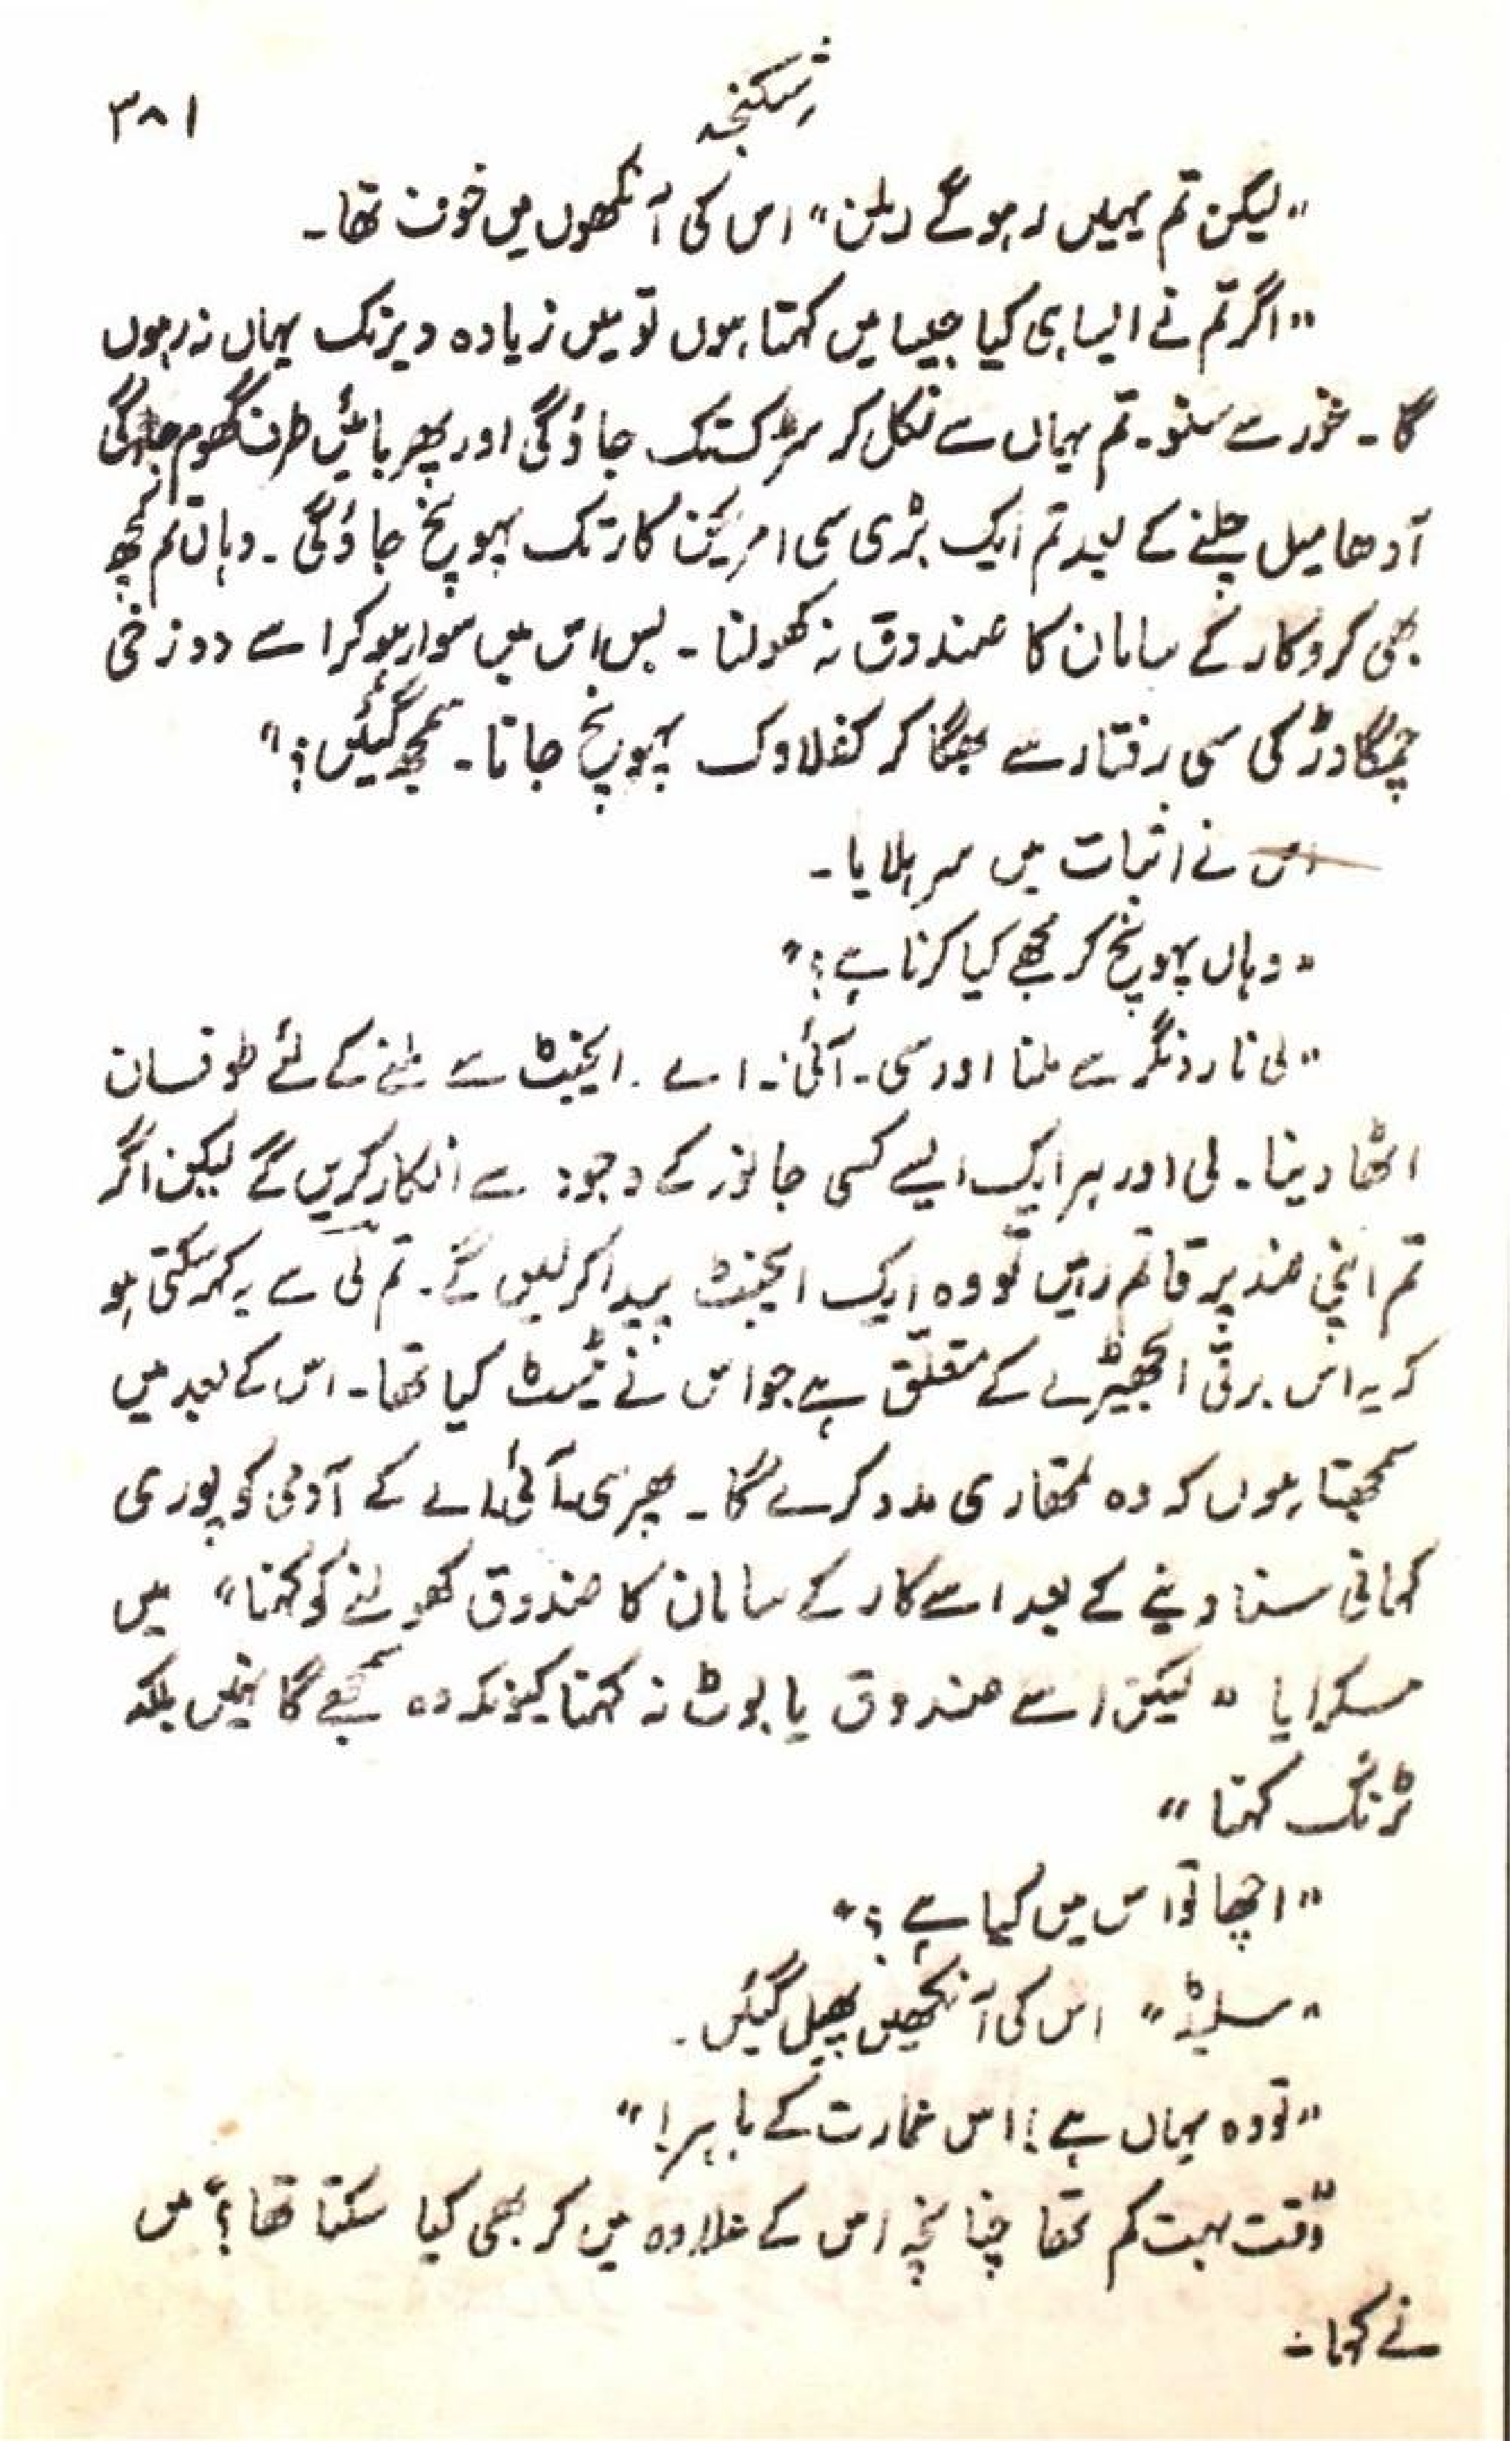 شکنجہ
۳۸۱
"لیکن تم یہیں رہو گے رلن" اس کی آنکھوں میں خوف تھا۔
"اگر تم نے ایسا ہی کیا جیسا میں کہتا ہوں تو میں زیادہ دیر تک یہاں نہ رہوں
گا۔ غور سے سنو۔ تم یہاں سے نکل کر سڑک تک جاؤ گی اور پھر بائیں طرف گھوم جاؤ گی
آدھا میل چلنے کے بعد تم ایک بڑی سی امریکن کار تک پہونچ جاؤ گی۔ وہاں تم کچھ
بھی کرو کار کے سامان کا صندوق نہ کھولنا۔ بس اس میں سوار ہو کر اسے دوزخی
چمگادڑ کی سی رفتار سے بھگا کر کفلاوک پہونچ جانا۔ سمجھ گئیں؟"
اس نے اثبات میں سر ہلایا۔
"وہاں پہونچ کر مجھے کیا کرنا ہے؟"
"لی نارڈنگر سے ملنا اور سی۔ آئی۔ اے۔ ایجنٹ سے ملنے کے لئے طوفان
اٹھا دینا۔ لی اور ہر ایک ایسے کسی جانور کے وجود سے انکار کریں گے لیکن اگر
تم اپنی ضد پر قائم رہیں تو وہ ایک ایجنٹ پیدا کر لیں گے۔ تم لی سے یہ کہہ سکتی ہو
کہ یہ اس برقی بکھیڑے کے متعلق ہے جو اس نے ٹیسٹ کیا تھا۔ اس کے بعد میں
سمجھتا ہوں کہ وہ تمھاری مدد کرے گا۔ پھر سی۔آئی۔اے کے آدمی کو پوری
کہانی سنا دینے کے بعد اسے کار کے سامان کا صندوق کھولنے کو کہنا" میں
مسکرایا "لیکن اسے صندوق یا بوٹ نہ کہنا کیونکہ وہ سمجھے گا نہیں بلکہ
ٹرنک کہنا"
"اچھا تو اس میں کیا ہے؟"
"سلیڈ" اس کی آنکھیں پھیل گئیں۔
"تو وہ یہاں ہے! اس عمارت کے باہر!"
"وقت بہت کم تھا چنانچہ اس کے علاوہ میں کر بھی کیا سکتا تھا؟" میں
نے کہا۔